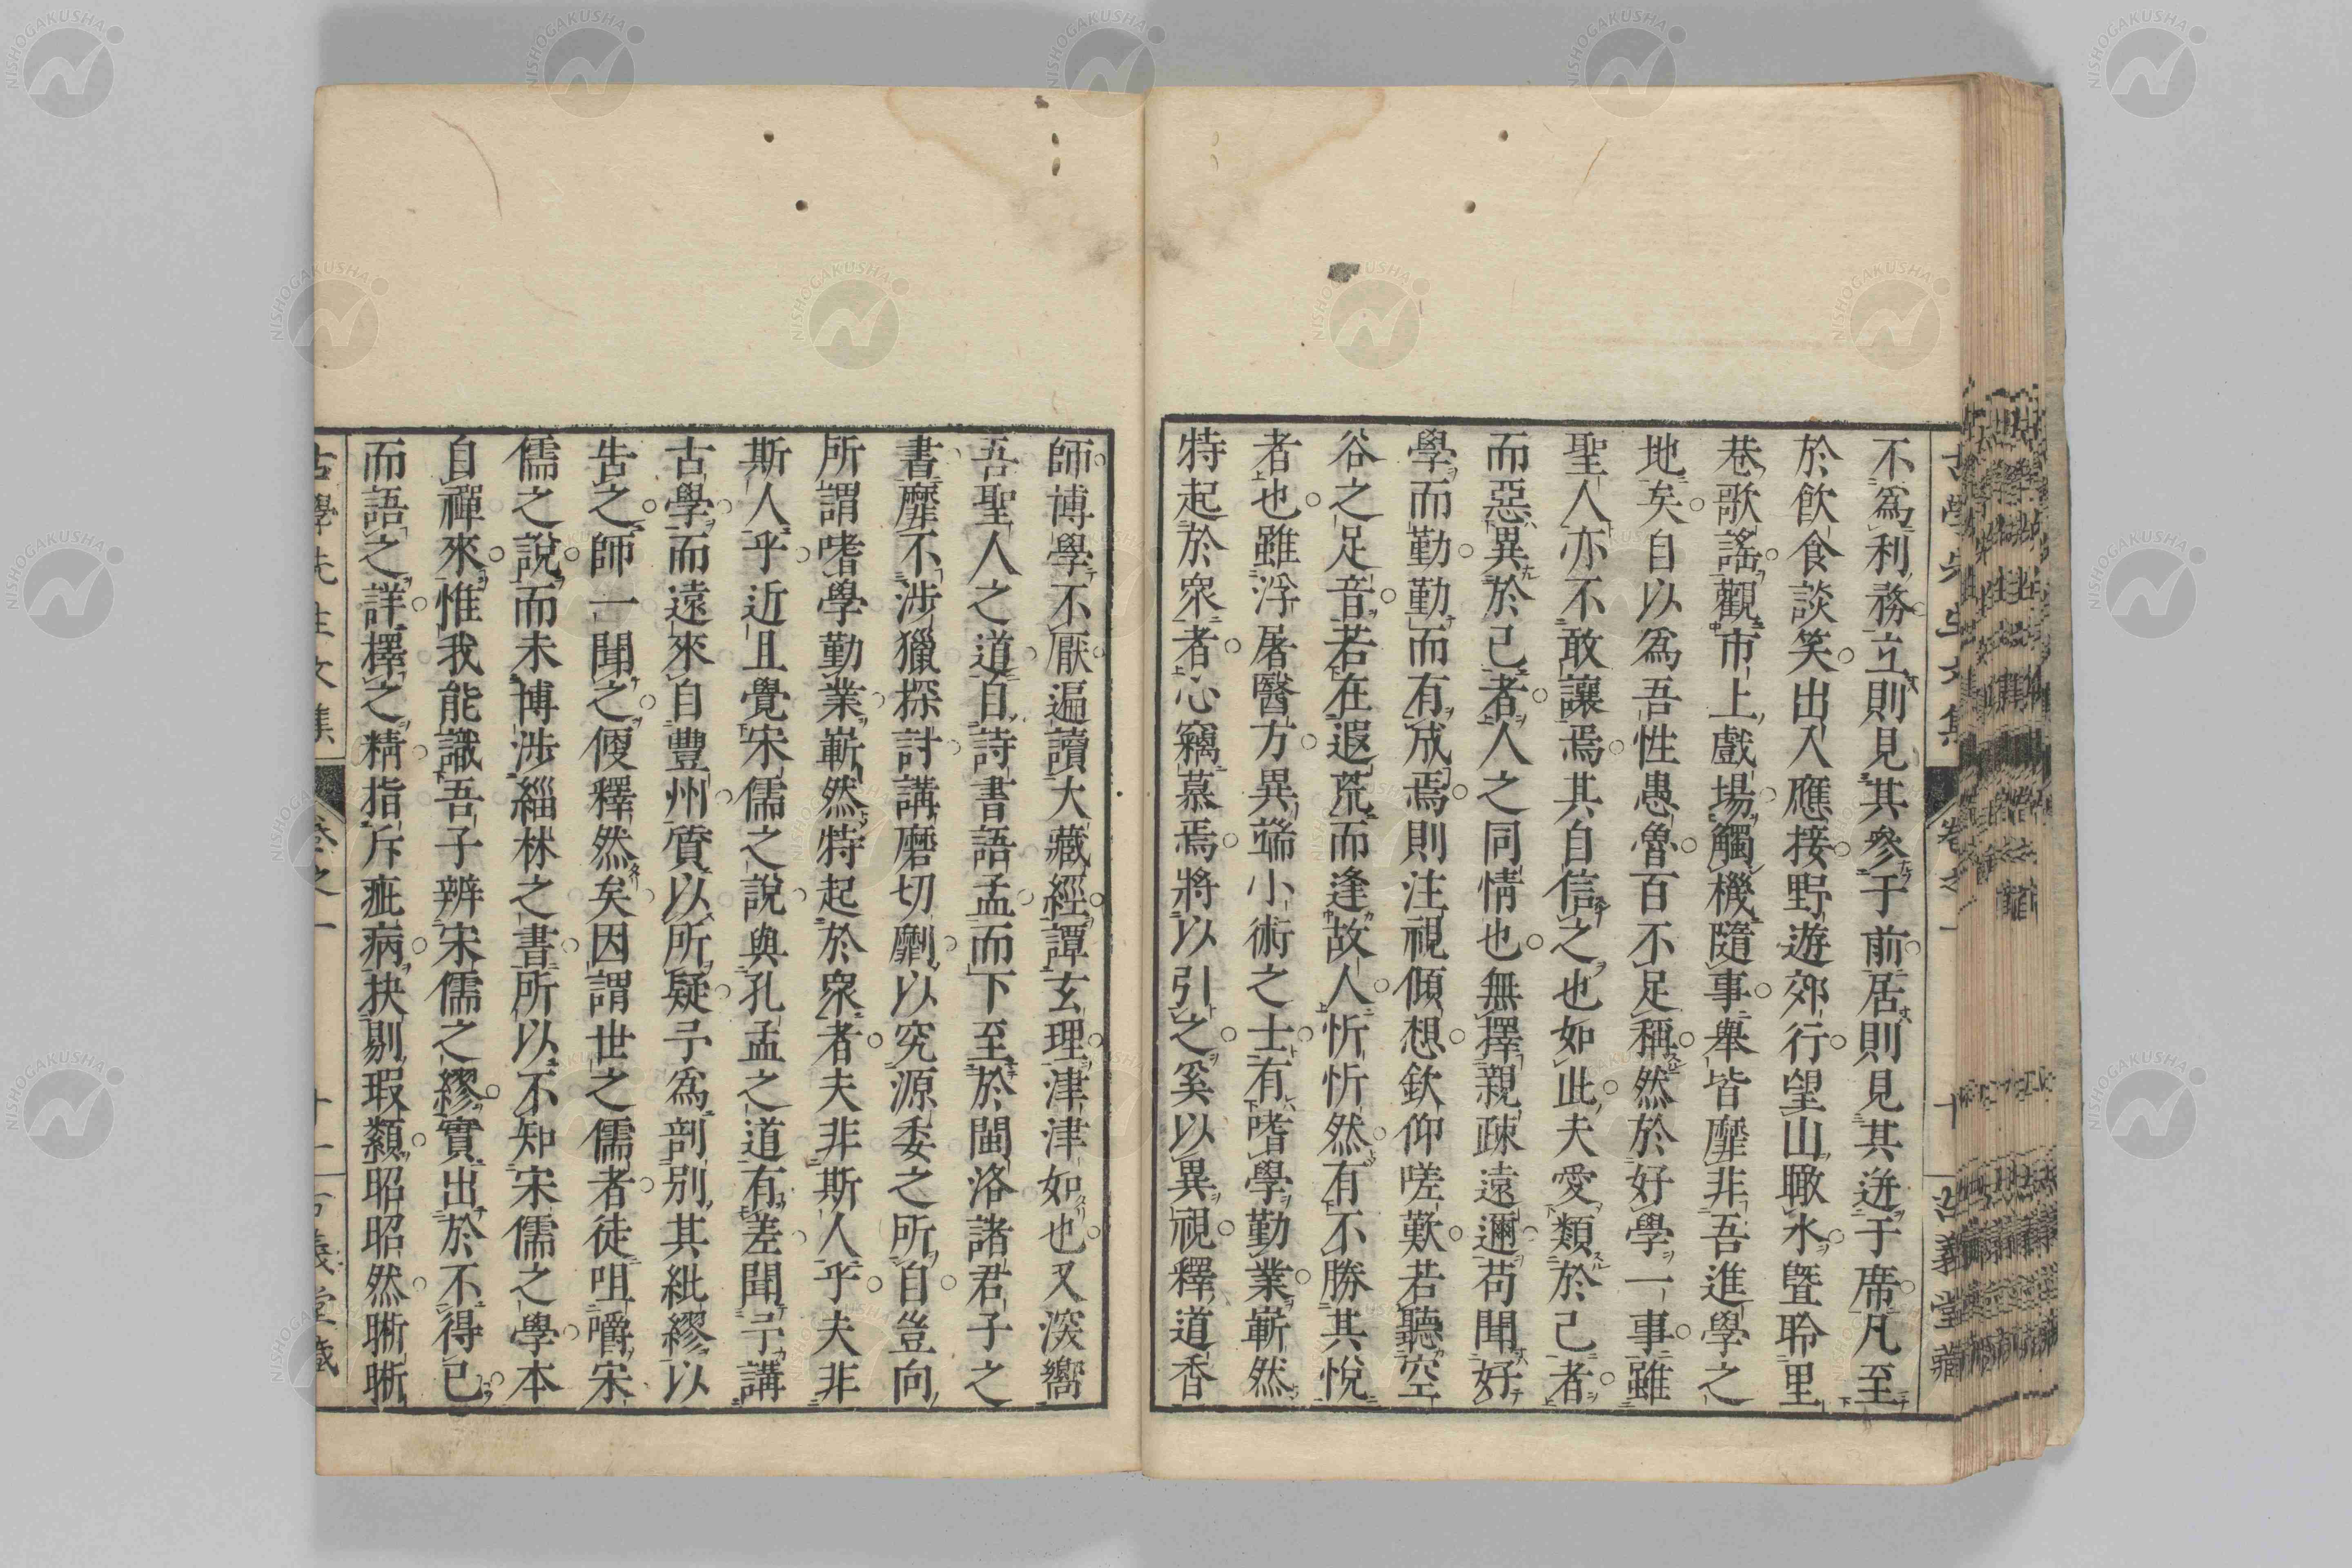 古學先生文集 卷之一 十 古義堂藏
不爲利務立則見其參于前居則見其迸于席凡至
於飮食談笑出入應接野遊郊行望山瞰水曁聆里
巷歌謠觀市上戲場觸機隨事舉皆靡非吾進學之
地矣自以爲吾性愚魯百不足稱然於好學一事雖
聖人亦不敢讓焉其自信之也如此夫愛類於己者
而惡異於己者人之同情也無擇親疎遠邇苟聞好
學而勤勤而有成焉則注視傾想欽仰嗟歎若聽空
谷之足音若在遐荒而逢故人忻忻然有不勝其悅
者也雖浮屠醫方異端小術之士有嗜學勤業嶄然
特起於衆者心竊慕焉將以引之奚以異視釋道香
師博學不厭遍讀大藏經譚玄理津津如也又深嚮
吾聖人之道自詩書語孟而下至於閩洛諸君子之
書靡不涉獵探討講磨切劘以究源委之所自豈向
所謂嗜學勤業嶄然特起於衆者夫非斯人乎夫非
斯人乎近且覺宋儒之說與孔孟之道有差聞予講
古學而遠來自豐州質以所疑予爲剖別其紕繆以
告之師一聞之便釋然矣因謂世之儒者徒咀嚼宋
儒之說而未博涉緇林之書所以不知宋儒之學本
自禪來惟我能識吾子辨宋儒之繆實出於不得已
而語之詳擇之精指斥疵病抉剔瑕纇昭昭然晣晣
古學先生文集 卷之一 十一 古義堂藏
NISHOGAKUSHA